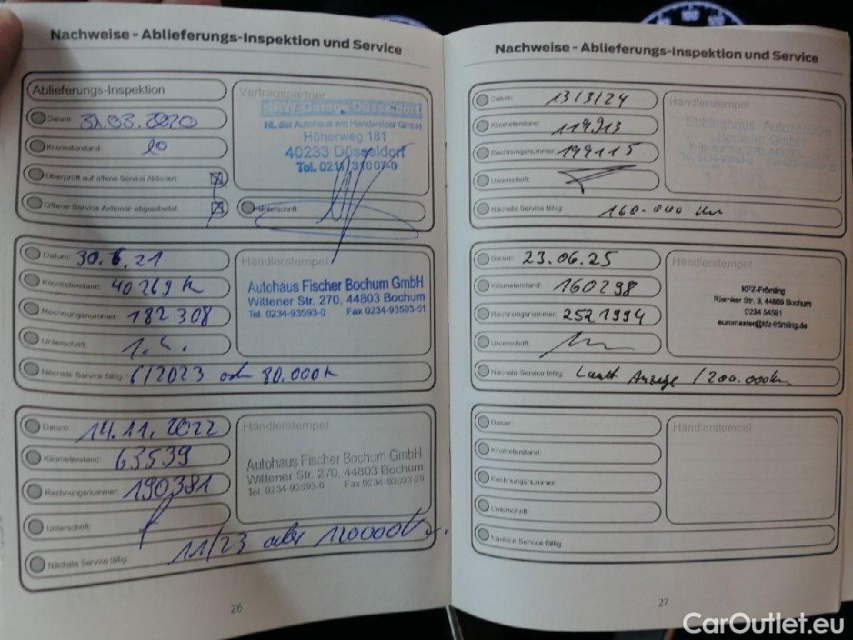 Nachweise - Ablieferungs-Inspektion und Service
Ablieferungs-Inspektion
Datum: 31.03.2020
Kilometerstand: 20
Überprüft auf offene Service Aktionen:
Offene Service Aktionen abgearbeitet:
Vertragspartner
NRW-Garage Düsseldorf
NL der Autohaus am Handweiser GmbH
Höherweg 181
40233 Düsseldorf
Tel. 0211/31007-0
Unterschrift
Datum: 30.6.21
Kilometerstand: 40269 k
Rechnungsnummer: 182308
Unterschrift:
Nächste Service fällig: 6/2023 od. 80.000k
Händlerstempel
Autohaus Fischer Bochum GmbH
Wittener Str. 270, 44803 Bochum
Tel. 0234-93593-0 Fax 0234-93593-51
Datum: 14.11.2022
Kilometerstand: 63539
Rechnungsnummer: 190381
Unterschrift:
Nächste Service fällig: 11/23 oder 120000k
Händlerstempel
Autohaus Fischer Bochum GmbH
Wittener Str. 270, 44803 Bochum
Tel. 0234-93593-0 Fax 0234-93593-20
26
Nachweise - Ablieferungs-Inspektion und Service
Datum: 13/3/24
Kilometerstand: 119913
Rechnungsnummer: 199115
Unterschrift:
Nächste Service fällig: 160.000 km
Händlerstempel
Ebbinghaus
Bochum GmbH
Datum: 23.06.25
Kilometerstand: 160298
Rechnungsnummer: 2521994
Unterschrift:
Nächste Service fällig: Laut Anzeige / 200.000km
Händlerstempel
KFZ-Frömling
Riemker Str. 3, 44809 Bochum
0234 54591
Datum:
Kilometerstand:
Rechnungsnummer:
Unterschrift:
Nächste Service fällig:
Händlerstempel
27
CarOutlet.eu